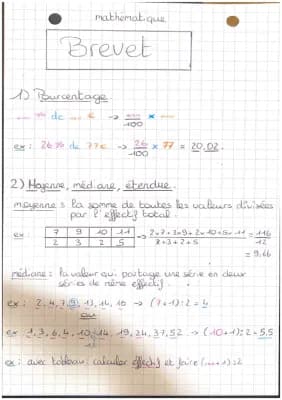 mathématique
Brevet
1) Pourcentage
... % de ... € → .../100 × ...
ex : 26% de 77€ → 26/100 × 77 = 20,02.
2) Moyenne, médiane, étendue.
moyenne : la somme de toutes les valeurs divisées
par l'effectif total.
ex : 7 9 10 11 → 2×7+3×9+2×10+5×11 = 116
2 3 2 5 2+3+2+5 12
= 9,66
médiane : la valeur qui partage une série en deux
séries de même effectif.
ex : 2, 4, 7, 9, 13, 14, 16 → (7+1):2 = 4
ou
ex : 1, 3, 6, 4, 10, 14, 19, 24, 37, 52 → (10+1):2 = 5,5
ex : avec tableau : calculer effectif et faire (...+1):2